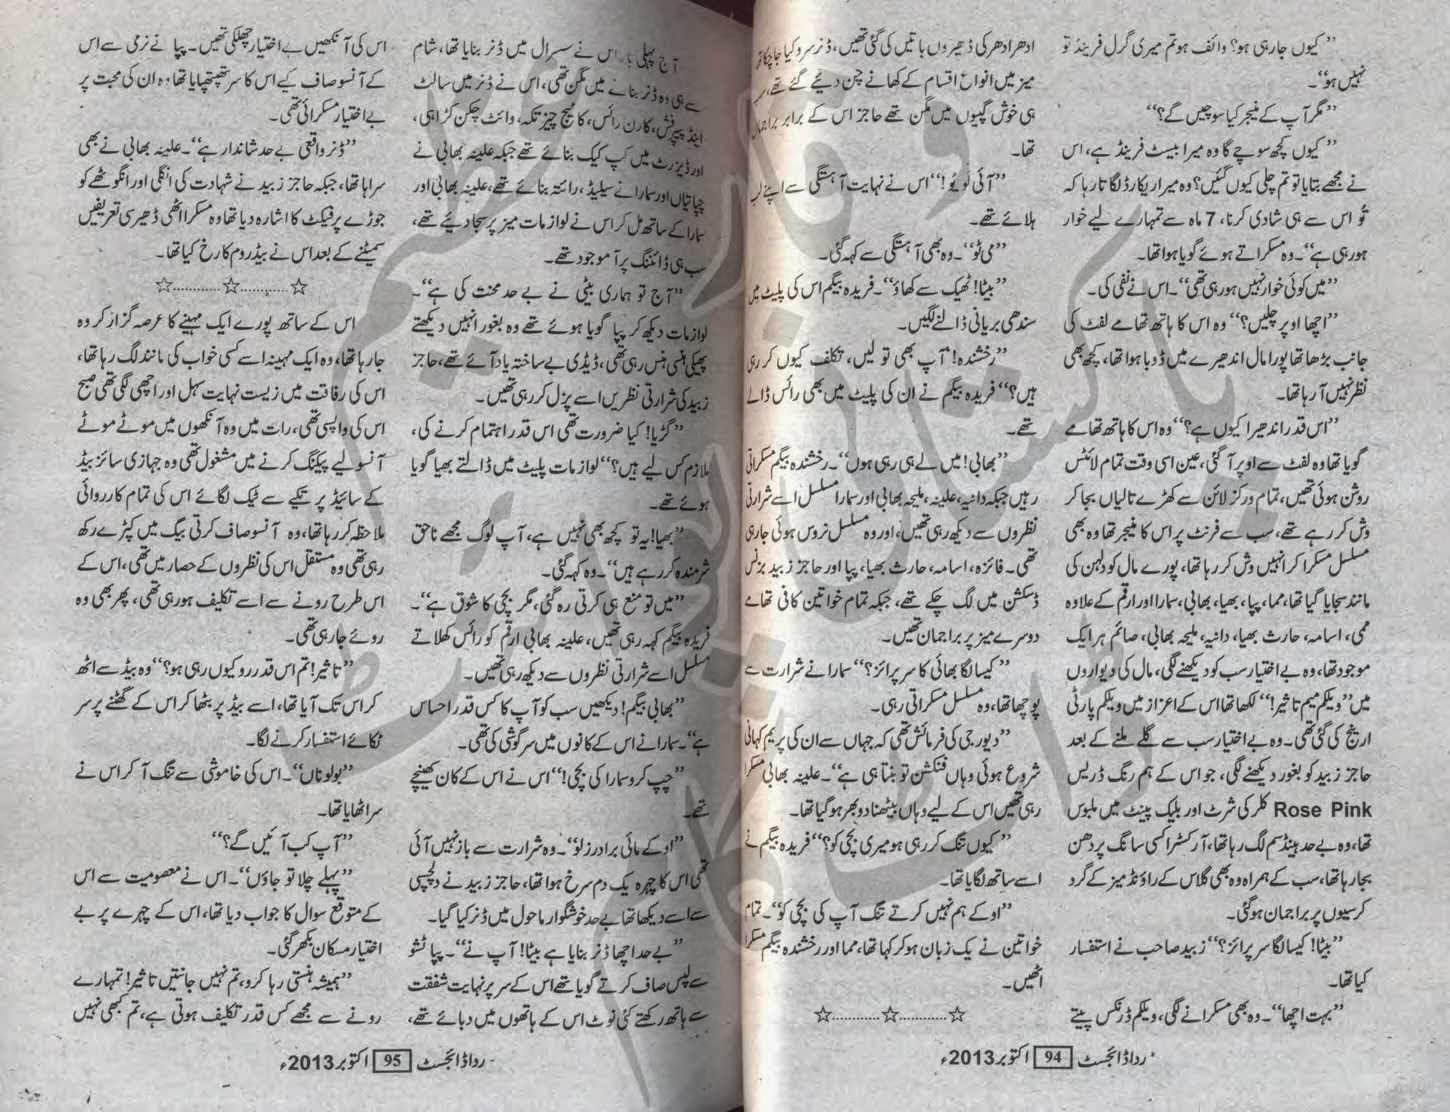 ”کیوں جا رہی ہو؟ وائف ہو تم میری گرل فرینڈ تو
نہیں ہو“۔
”مگر آپ کے منیجر کیا سوچیں گے؟“
”کیوں کچھ سوچے گا وہ میرا بیسٹ فرینڈ ہے، اس
نے مجھے بتایا تو تم چلی کیوں گئیں؟ وہ میرا ریکارڈ لگاتا رہا کہ
تُو اس سے ہی شادی کرنا، 7 ماہ سے تمہارے لیے خوار
ہو رہی ہے“۔ وہ مسکراتے ہوئے گویا ہوا تھا۔
”میں کوئی خوار نہیں ہو رہی تھی“۔ اس نے نفی کی۔
”اچھا اوپر چلیں؟“ وہ اس کا ہاتھ تھامے لفٹ کی
جانب بڑھا تھا پورا مال اندھیرے میں ڈوبا ہوا تھا، کچھ بھی
نظر نہیں آ رہا تھا۔
”اس قدر اندھیرا کیوں ہے؟“ وہ اس کا ہاتھ تھامے
گویا تھا وہ لفٹ سے اوپر آ گئی، عین اسی وقت تمام لائٹس
روشن ہوئی تھیں، تمام ورکرز لائن سے کھڑے تالیاں بجا کر
وش کر رہے تھے، سب سے فرنٹ پر اس کا منیجر تھا وہ بھی
مسلسل مسکرا کر انہیں وش کر رہا تھا، پورے مال کو دلہن کی
مانند سجایا گیا تھا، مما، پپا، بھیا، بھابی، سمارا اور ارقم کے علاوہ
ممی، اسامہ، حارث بھیا، دانیہ، ملیحہ بھابی، صائم ہر ایک
موجود تھا، وہ بے اختیار سب کو دیکھنے لگی، مال کی دیواروں
میں ”ویلکم میم تاثیر!“ لکھا تھا اس کے اعزاز میں ویلکم پارٹی
ارینج کی گئی تھی۔ وہ بے اختیار سب سے گلے ملنے کے بعد
حاجز زبید کو بغور دیکھنے لگی، جو اس کے ہم رنگ ڈریس
Rose Pink کلر کی شرٹ اور بلیک پینٹ میں ملبوس
تھا، وہ بے حد ہینڈسم لگ رہا تھا، آرکسٹرا کسی سانگ پر دھن
بجا رہا تھا، سب کے ہمراہ وہ بھی گلاس کے راؤنڈ میز کے گرد
کرسیوں پر براجمان ہو گئی۔
”بیٹا! کیسا لگا سرپرائز؟“ زبید صاحب نے استفسار
کیا تھا۔
”بہت اچھا“۔ وہ بھی مسکرانے لگی، ویلکم ڈرنکس پیتے
ادھر ادھر کی ڈھیروں باتیں کی گئی تھیں، ڈنر سرو کیا جا چکا تھا
میز میں انواع اقسام کے کھانے چن دیئے گئے تھے، سب
ہی خوش گپیوں میں مگن تھے حاجز اس کے برابر براجمان
تھا۔
”آئی لو یُو!“ اس نے نہایت آہستگی سے اپنے لب
ہلائے تھے۔
”می ٹو“۔ وہ بھی آہستگی سے کہہ گئی۔
”بیٹا! ٹھیک سے کھاؤ“۔ فریدہ بیگم اس کی پلیٹ میں
سندھی بریانی ڈالنے لگیں۔
”رخشندہ! آپ بھی تو لیں، تکلف کیوں کر رہی
ہیں؟“ فریدہ بیگم نے ان کی پلیٹ میں بھی رائس ڈالے
تھے۔
”بھابی! میں لے ہی رہی ہوں“۔ رخشندہ بیگم مسکراتی
رہیں جبکہ دانیہ، علینہ، ملیحہ بھابی اور سمارا مسلسل اسے شرارتی
نظروں سے دیکھ رہی تھیں، اور وہ مسلسل نروس ہوئی جا رہی
تھی۔ فائزہ، اسامہ، حارث بھیا، پپا اور حاجز زبید بزنس
ڈسکشن میں لگ چکے تھے، جبکہ تمام خواتین کافی تھامے
دوسرے میز پر براجمان تھیں۔
”کیسا لگا بھائی کا سرپرائز؟“ سمارا نے شرارت سے
پوچھا تھا، وہ مسلسل مسکراتی رہی۔
”دیور جی کی فرمائش تھی کہ جہاں سے ان کی پریم کہانی
شروع ہوئی وہاں فنکشن تو بنتا ہی ہے“۔ علینہ بھابی مسکرا
رہی تھیں اس کے لیے وہاں بیٹھنا دوبھر ہو گیا تھا۔
”کیوں تنگ کر رہی ہو میری بچی کو؟“ فریدہ بیگم نے
اسے ساتھ لگایا تھا۔
”اوکے ہم نہیں کرتے تنگ آپ کی بچی کو“۔ تمام
خواتین نے یک زبان ہو کر کہا تھا، مما اور رخشندہ بیگم مسکرا
اٹھیں۔
☆..........☆..........☆
رداڈائجسٹ 94 اکتوبر 2013ء
آج پہلی بار اس نے سسرال میں ڈنر بنایا تھا، شام
سے ہی وہ ڈنر بنانے میں مگن تھی، اس نے ڈنر میں سالٹ
اینڈ پیپر فش، کارن رائس، کاٹیج چیز تکہ، وائٹ چکن کڑاہی،
اور ڈیزرٹ میں کپ کیک بنائے تھے جبکہ علینہ بھابی نے
چپاتیاں اور سمارا نے سیلیڈ، رائتہ بنائے تھے، علینہ بھابی اور
سمارا کے ساتھ مل کر اس نے لوازمات میز پر سجا دیئے تھے،
سب ہی ڈائننگ پر آ موجود تھے۔
”آج تو ہماری بیٹی نے بے حد محنت کی ہے“۔
لوازمات دیکھ کر پپا گویا ہوئے تھے وہ بغور انہیں دیکھتے
پھیکی ہنسی ہنس رہی تھی، ڈیڈی بے ساختہ یاد آئے تھے، حاجز
زبید کی شرارتی نظریں اسے پزل کر رہی تھیں۔
”گڑیا! کیا ضرورت تھی اس قدر اہتمام کرنے کی،
ملازم کس لیے ہیں؟“ لوازمات پلیٹ میں ڈالتے بھیا گویا
ہوئے تھے۔
”بھیا! یہ تو کچھ بھی نہیں ہے، آپ لوگ مجھے ناحق
شرمندہ کر رہے ہیں“۔ وہ کہہ گئی۔
”میں تو منع ہی کرتی رہ گئی، مگر بچی کا شوق ہے“۔
فریدہ بیگم کہہ رہی تھیں، علینہ بھابی ارقم کو رائس کھلاتے
مسلسل اسے شرارتی نظروں سے دیکھ رہی تھیں۔
”بھابی بیگم! دیکھیں سب کو آپ کا کس قدر احساس
ہے“۔ سمارا نے اس کے کانوں میں سرگوشی کی تھی۔
”چپ کرو سمارا کی بچی!“ اس نے اس کے کان کھینچے
تھے۔
”اوکے مائی برادرز لو“۔ وہ شرارت سے باز نہیں آئی
تھی اس کا چہرہ یک دم سرخ ہوا تھا، حاجز زبید نے دلچسپی
سے اسے دیکھا تھا بے حد خوشگوار ماحول میں ڈنر کیا گیا۔
”بے حد اچھا ڈنر بنایا ہے بیٹا! آپ نے“۔ پپا ٹشو
سے لپس صاف کرتے گویا تھے اس کے سر پر نہایت شفقت
سے ہاتھ رکھتے کئی نوٹ اس کے ہاتھوں میں دبائے تھے،
اس کی آنکھیں بے اختیار چھلکی تھیں۔ پپا نے نرمی سے اس
کے آنسو صاف کیے اس کا سر تھپتھپایا تھا وہ ان کی محبت پر
بے اختیار مسکرائی تھی۔
”ڈنر واقعی بے حد شاندار ہے“۔ علینہ بھابی نے بھی
سراہا تھا، جبکہ حاجز زبید نے شہادت کی انگلی اور انگوٹھے کو
جوڑے پرفیکٹ کا اشارہ دیا تھا وہ مسکرا اٹھی ڈھیر سی تعریفیں
سمیٹنے کے بعد اس نے بیڈ روم کا رخ کیا تھا۔
☆..........☆..........☆
اس کے ساتھ پورے ایک مہینے کا عرصہ گزار کر وہ
جا رہا تھا، وہ ایک مہینہ اسے کسی خواب کی مانند لگ رہا تھا،
اس کی رفاقت میں زیست نہایت سہل اور اچھی لگی تھی صبح
اس کی واپسی تھی، رات میں وہ آنکھوں میں موٹے موٹے
آنسو لیے پیکنگ کرنے میں مشغول تھی وہ جہازی سائز بیڈ
کے سائیڈ پر تکیے سے ٹیک لگائے اس کی تمام کارروائی
ملاحظہ کر رہا تھا، وہ آنسو صاف کرتی بیگ میں کپڑے رکھ
رہی تھی وہ مستقل اس کی نظروں کے حصار میں تھی، اس کے
اس طرح رونے سے اسے تکلیف ہو رہی تھی، پھر بھی وہ
روئے جا رہی تھی۔
”تاثیر! تم اس قدر رو کیوں رہی ہو؟“ وہ بیڈ سے اٹھ
کر اس تک آیا تھا، اسے بیڈ پر بٹھا کر اس کے گھٹنے پر سر
ٹکائے استفسار کرنے لگا۔
”بولو ناں“۔ اس کی خاموشی سے تنگ آ کر اس نے
سر اٹھایا تھا۔
”آپ کب آئیں گے؟“
”پہلے چلا تو جاؤں“۔ اس نے معصومیت سے اس
کے متوقع سوال کا جواب دیا تھا، اس کے چہرے پر بے
اختیار مسکان بکھر گئی۔
”ہمیشہ ہنستی رہا کرو، تم نہیں جانتیں تاثیر! تمہارے
رونے سے مجھے کس قدر تکلیف ہوتی ہے، تم کبھی نہیں
رداڈائجسٹ 95 اکتوبر 2013ء